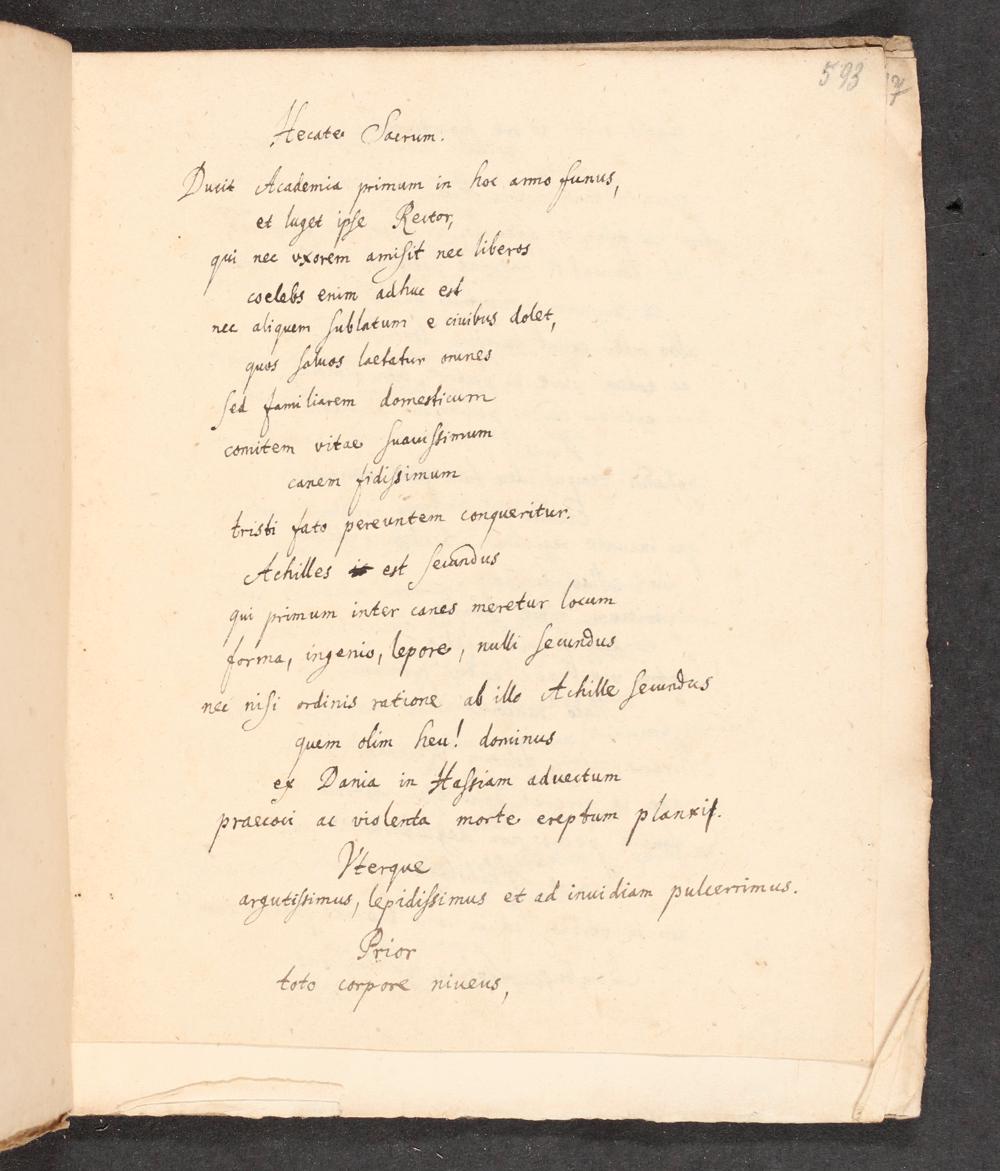 593
Hecatae Sacrum.
Ducit Academia primum in hoc anno funus,
et luget ipse Rector,
qui nec vxorem amisit nec liberos
coelebs enim adhuc est
nec aliquem sublatum e ciuibus dolet,
quos saluos laetatur omnes
sed familiarem domesticum
comitem vitae suauissimum
canem fidissimum
tristi fato pereuntem conqueritur.
Achilles est secundus
qui primum inter canes meretur locum
forma, ingenio, lepore, nulli secundus
nec nisi ordinis ratione ab illo Achille secundus
quem olim heu! dominus
ex Dania in Hassiam aduectum
praecoci ac violenta morte ereptum planxit.
Vterque
argutissimus, lepidissimus et ad inuidiam pulcerrimus.
Prior
toto corpore niueus,